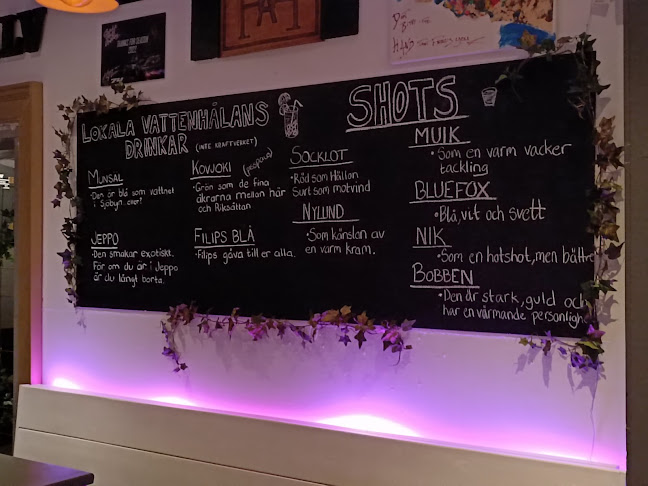 LOKALA VATTENHÅLANS
DRINKAR (INTE KRAFTVERKET)
MUNSAL
• Den är blå som vattnet
i Sjöbyn
JEPPO
• Den smakar exotiskt.
För om du är i Jeppo
är du långt borta.
KOVJOKI
• Grön som de fina
åkrarna mellan här
och Riksåttan
FILIPS BLÅ
• Filips gåva till er alla.
SOCKLOT
• Röd som Hallon
Surt som motvind
NYLUND
• Som känslan av
en varm kram.
SHOTS
MUIK
• Som en varm vacker
tackling
BLUEFOX
• Blå, vit och svett
NIK
• Som en hotshot, men bättre
BOBBEN
• Den är stark, guld och
har en värmande personlighe